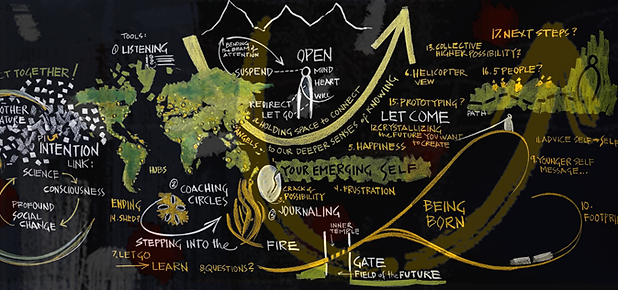 CT TOGETHER!
OTHER
NATURE
INTENTION
LINK:
SCIENCE
CONSCIOUSNESS
PROFOUND
SOCIAL
CHANGE
TOOLS:
① LISTENING
HUBS
ENDING
14. SHED?
② COACHING
CIRCLES
STEPPING INTO the
FIRE
7. LET GO
LEARN
8. QUESTIONS?
BENDING
the BEAM of
ATTENTION
SUSPEND
OPEN
MIND
HEART
WILL
REDIRECT
LET GO
HOLDING SPACE to CONNECT
to OUR DEEPER SENSES of KNOWING
ANGELS
YOUR EMERGING SELF
CRACK of
POSSIBILITY
4. FRUSTRATION
③ JOURNALING
INNER
TEMPLE
GATE
FIELD of the FUTURE
BEING
BORN
13. COLLECTIVE
HIGHER POSSIBILITY?
6. HELICOPTER
VIEW
15. PROTOTYPING?
LET COME
12. CRYSTALLIZING
the FUTURE YOU WANT
to CREATE
5. HAPPINESS
17. NEXT STEPS?
16. 5 PEOPLE?
PATH
11. ADVICE SELF → SELF
9. YOUNGER SELF
MESSAGE...
10.
FOOTPRI